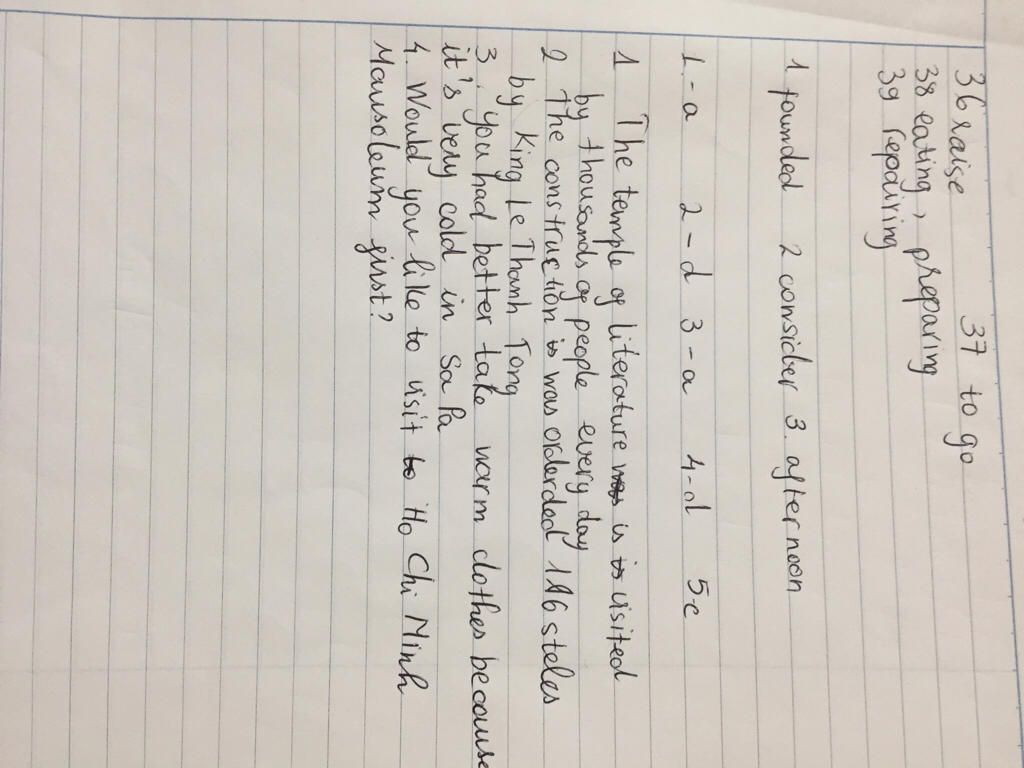 36 raise 37 to go
38 eating, preparing
39 repairing
1 founded 2 consider 3. afternoon
1.-a 2-d 3-a 4-d 5c
1 The temple of literature was is is visited
by thousands of people every day
2 The construction is was orderded 116 steles
by King Le Thanh Tong
3. you had better take warm clothes because
it's very cold in Sa Pa
4. Would you like to visit to Ho Chi Minh
Mausoleum first?